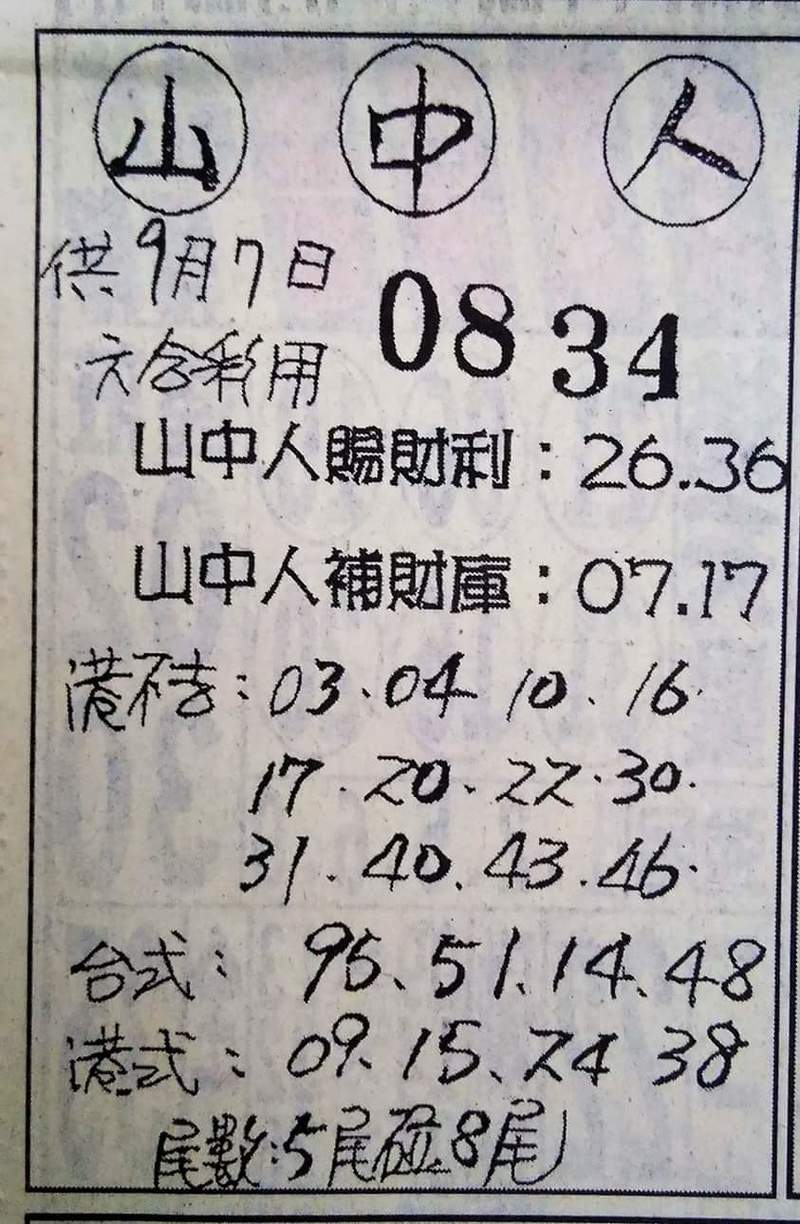 山 中 人
供9月7日
六合彩用
08 34
山中人賜財利：26.36
山中人補財庫：07.17
港不吉：03.04 10.16.
17.20.22.30.
31.40.43.46.
台式：95.51.14.48
港式：09.15.24 38
尾數:5尾碰8尾